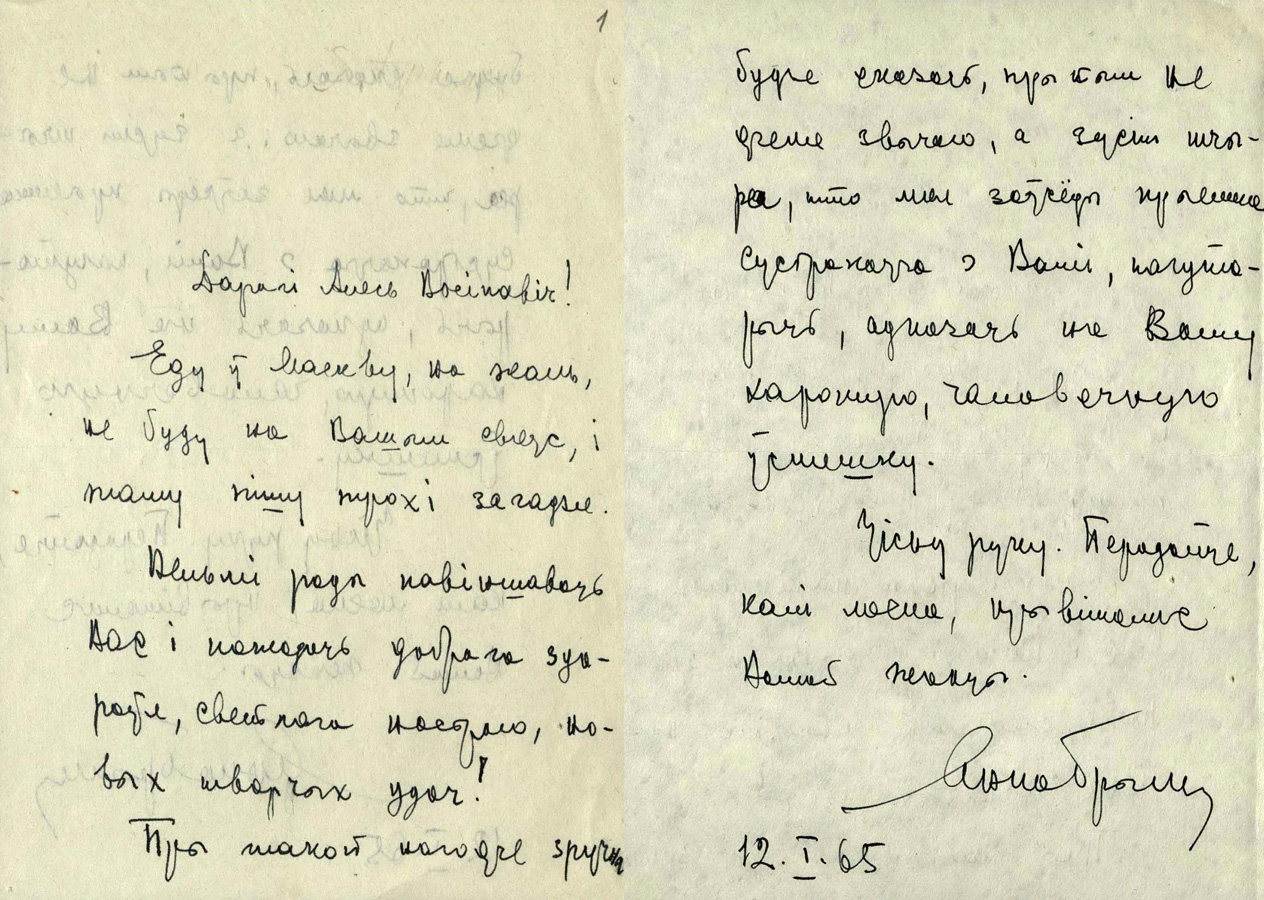 1
Дарагі Алесь Восіпавіч!
Еду ў Маскву, на жаль,
не буду на Вашым свяце, і
таму пішу трохі загадзя.
Вельмі рады павіншаваць
Вас і пажадаць добрага зда-
роўя, светлага настрою, но-
вых творчых удач!
Пры такой нагодзе зручна
будзе сказаць, пры тым не
дзеля звычаю, а зусім шчы-
ра, што мы заўсёды прыемна
сустракацца з Вамі, пагута-
рыць, адказаць на Вашу
харошую, чалавечную
ўсмешку.
Цісну руку. Перадайце,
калі ласка, прывітанне
Вашай жонцы.
Янка Брыль
12.I.65